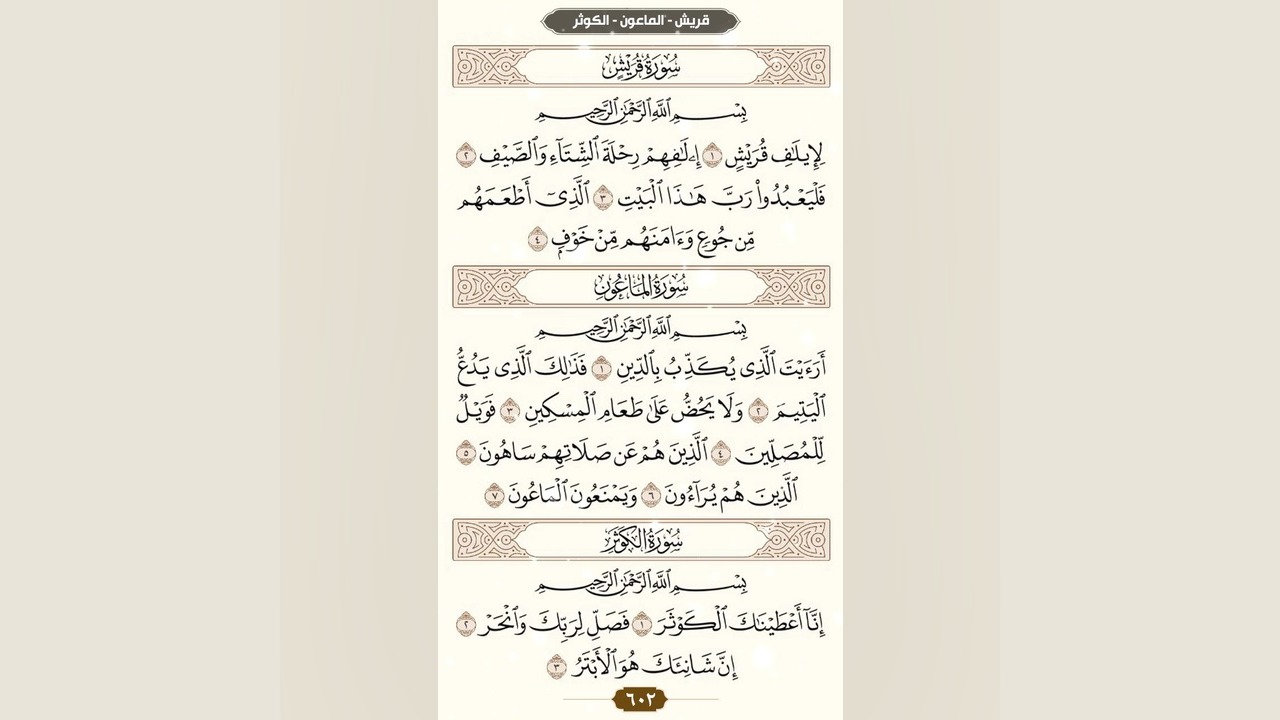 قريش - الماعون - الكوثر
سُورَةُ قُرَيْشٍ
بِسْمِ اللَّهِ الرَّحْمَٰنِ الرَّحِيمِ
لِإِيلَٰفِ قُرَيْشٍ ١ إِۦلَٰفِهِمْ رِحْلَةَ ٱلشِّتَآءِ وَٱلصَّيْفِ ٢
فَلْيَعْبُدُوا۟ رَبَّ هَٰذَا ٱلْبَيْتِ ٣ ٱلَّذِىٓ أَطْعَمَهُم
مِّن جُوعٍ وَءَامَنَهُم مِّنْ خَوْفٍۭ ٤
سُورَةُ المَاعُونِ
بِسْمِ اللَّهِ الرَّحْمَٰنِ الرَّحِيمِ
أَرَءَيْتَ ٱلَّذِى يُكَذِّبُ بِٱلدِّينِ ١ فَذَٰلِكَ ٱلَّذِى يَدُعُّ
ٱلْيَتِيمَ ٢ وَلَا يَحُضُّ عَلَىٰ طَعَامِ ٱلْمِسْكِينِ ٣ فَوَيْلٌ
لِّلْمُصَلِّينَ ٤ ٱلَّذِينَ هُمْ عَن صَلَاتِهِمْ سَاهُونَ ٥
ٱلَّذِينَ هُمْ يُرَآءُونَ ٦ وَيَمْنَعُونَ ٱلْمَاعُونَ ٧
سُورَةُ الكَوْثَرِ
بِسْمِ اللَّهِ الرَّحْمَٰنِ الرَّحِيمِ
إِنَّآ أَعْطَيْنَٰكَ ٱلْكَوْثَرَ ١ فَصَلِّ لِرَبِّكَ وَٱنْحَرْ ٢
إِنَّ شَانِئَكَ هُوَ ٱلْأَبْتَرُ ٣
٦٠٢